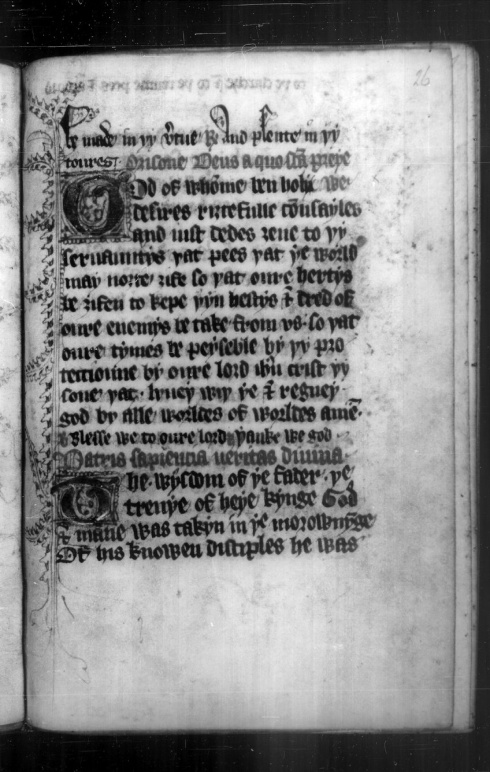 26
be made in yy vrtue ꝶ And plente in yy
toures. Orisone Deus a quo scā preye
God of whome ben holy we
desires rittefulle cōnsayles
and iust dedes ȝeue to yy
seruauntys yat pees yat ye world
may notte ȝife so yat oure hertys
be ȝifen to kepe yyn hestys ⁊ dred of
oure enemys be take from vs. so yat
oure tymes be peyseble by yy pro
tectioune by oure lord ihū crist yy
sone yat. lyuey wiy ye ⁊ regney.
god by alle worldes of worldes amē.
Blesse we to oure lord yanke we god.
Patris sapiencia ueritas diuina
The wysdom of ye fader. ye
treuye of heye kynge God
⁊ mane was takyn in ye morownynge
Of his knowen disciples he was